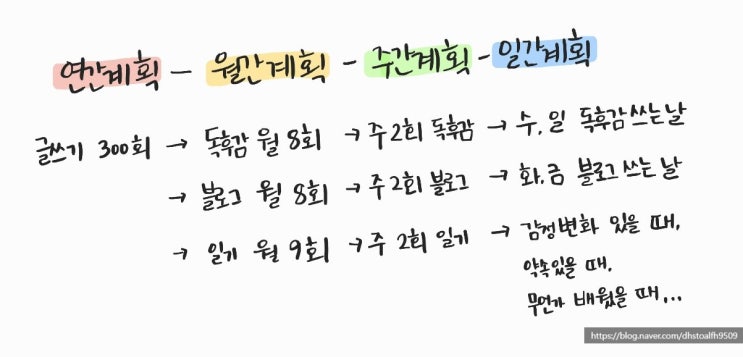 연간계획 - 월간계획 - 주간계획 - 일간계획
글쓰기 300회 → 독후감 월 8회 → 주 2회 독후감 → 수, 일 독후감 쓰는 날
→ 블로그 월 8회 → 주 2회 블로그 → 화, 금 블로그 쓰는 날
→ 일기 월 9회 → 주 2회 일기 → 감정변화 있을 때,
약속있을 때,
무언가 배웠을 때,...
https://blog.naver.com/dhstoalfh9509